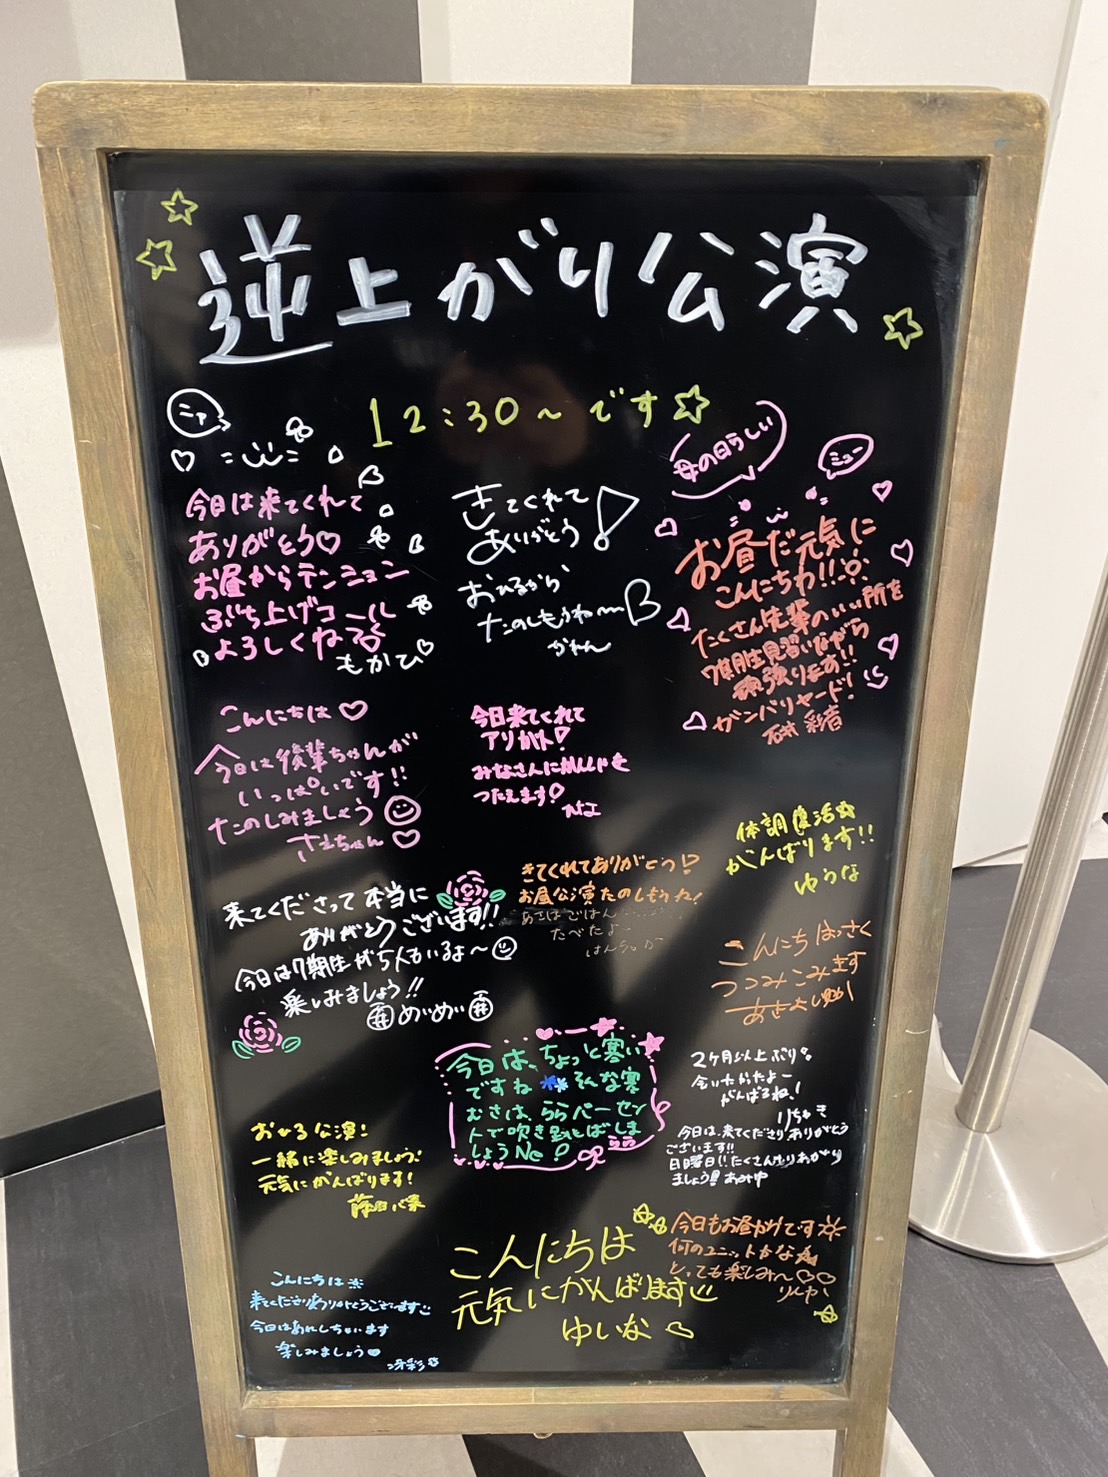 逆上がり公演
12:30~です☆
ニァ
今日は来てくれて
ありがとう♡
お昼からテンション
ぶち上げコール
よろしくね
もかひ
きてくれて
ありがとう!
おひるから
たのしもうね〜
かれん
母の日らしい
ミュー
お昼だ元気に
こんにちわ!!
たくさん先輩のいい所を
7期生見習いながら
頑張ります!!
ガンバリヤード!
石井 彩音
こんにちは♡
今日は後輩ちゃんが
いっぱいです!!
たのしみましょう
さえちゃん♡
今日来てくれて
アリガト!
みなさんにかんしゃを
つたえます!
体調復活☆
がんばります!!
ゆうな
来てくださって本当に
ありがとうございます!!
今日は7期生が5人もいるよ〜
楽しみましょう!!
めいめい
きてくれてありがとう!
お昼公演たのしもうね!
あさはごはん
たべたよー
こんにちは
つつみこみます
今日は、ちょっと寒い
ですね そんな寒
むさは、ららパーセン
トで吹き飛とばしま
しょうNe!
らら
2ヶ月以上ぶり
会いたかったよー
がんばるね!
りちゅき
今日は、来てくださりありがとう
ございます!!
日曜日!!たくさんもりあがり
ましょう!!
おひる公演!
一緒に楽しみましょう!
元気にがんばります!
こんにちは
元気にがんばります
ゆいな
今日もお昼からです
何のユニットかな
とっても楽しみ〜♡♡
こんにちは
来てくださりありがとうございます
今日は
楽しみましょう
冴彩